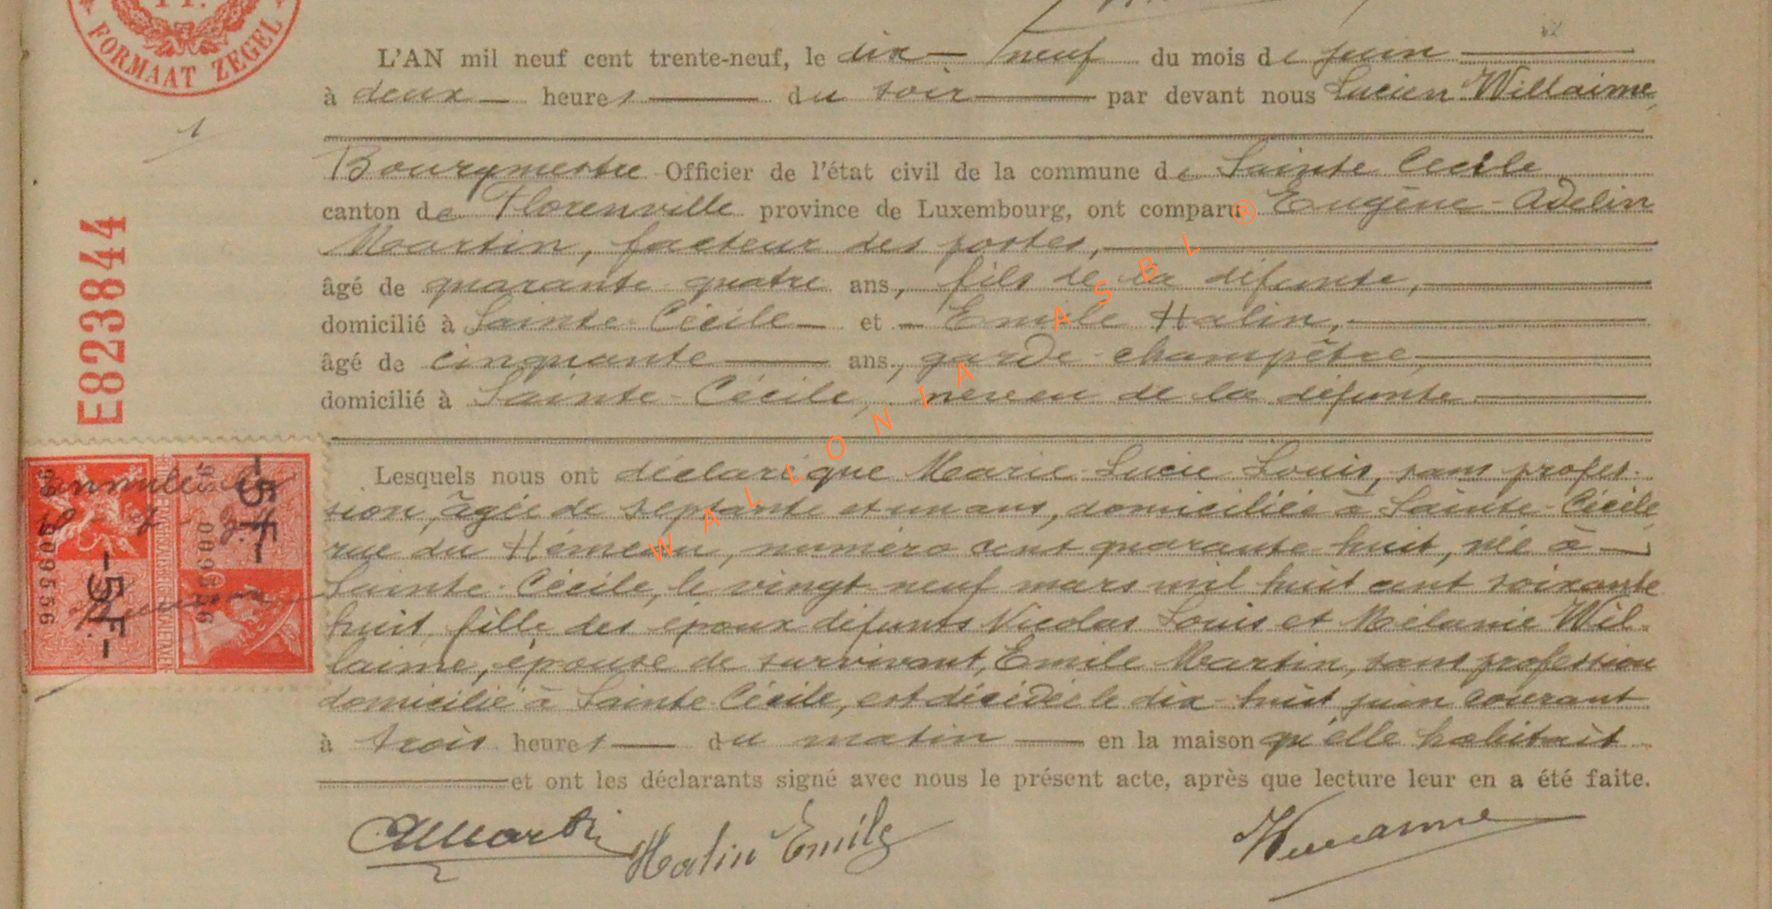 FORMAAT ZEGEL
L'AN mil neuf cent trente-neuf, le dix-neuf du mois de juin
à deux heures du soir par devant nous Lucien Willaime
Bourgmestre Officier de l'état civil de la commune de Sainte Cécile
canton de Florenville province de Luxembourg, ont comparu Eugène-Adelin
Martin, facteur des postes,
âgé de quarante quatre ans, fils de la défunte,
domicilié à Sainte-Cécile et Emile Halin,
âgé de cinquante ans, garde-champêtre
domicilié à Sainte-Cécile, neveu de la défunte
Lesquels nous ont déclaré que Marie-Lucie Louis, sans profes-
sion, âgée de septante et un ans, domiciliée à Sainte-Cécile
rue du, numéro cent quarante huit, née à
Sainte-Cécile, le vingt neuf mars mil huit cent soixante
huit, fille des époux défunts Nicolas Louis et Mélanie Wil-
laime, épouse de survivant, Emile Martin, sans profession
domicilié à Sainte Cécile, est décédée le dix-huit juin courant
à trois heures du matin en la maison qu'elle habitait
et ont les déclarants signé avec nous le présent acte, après que lecture leur en a été faite.
Halin Emile
E823844
-5F-
-5F-
009556
WALLONIA ASBL ®